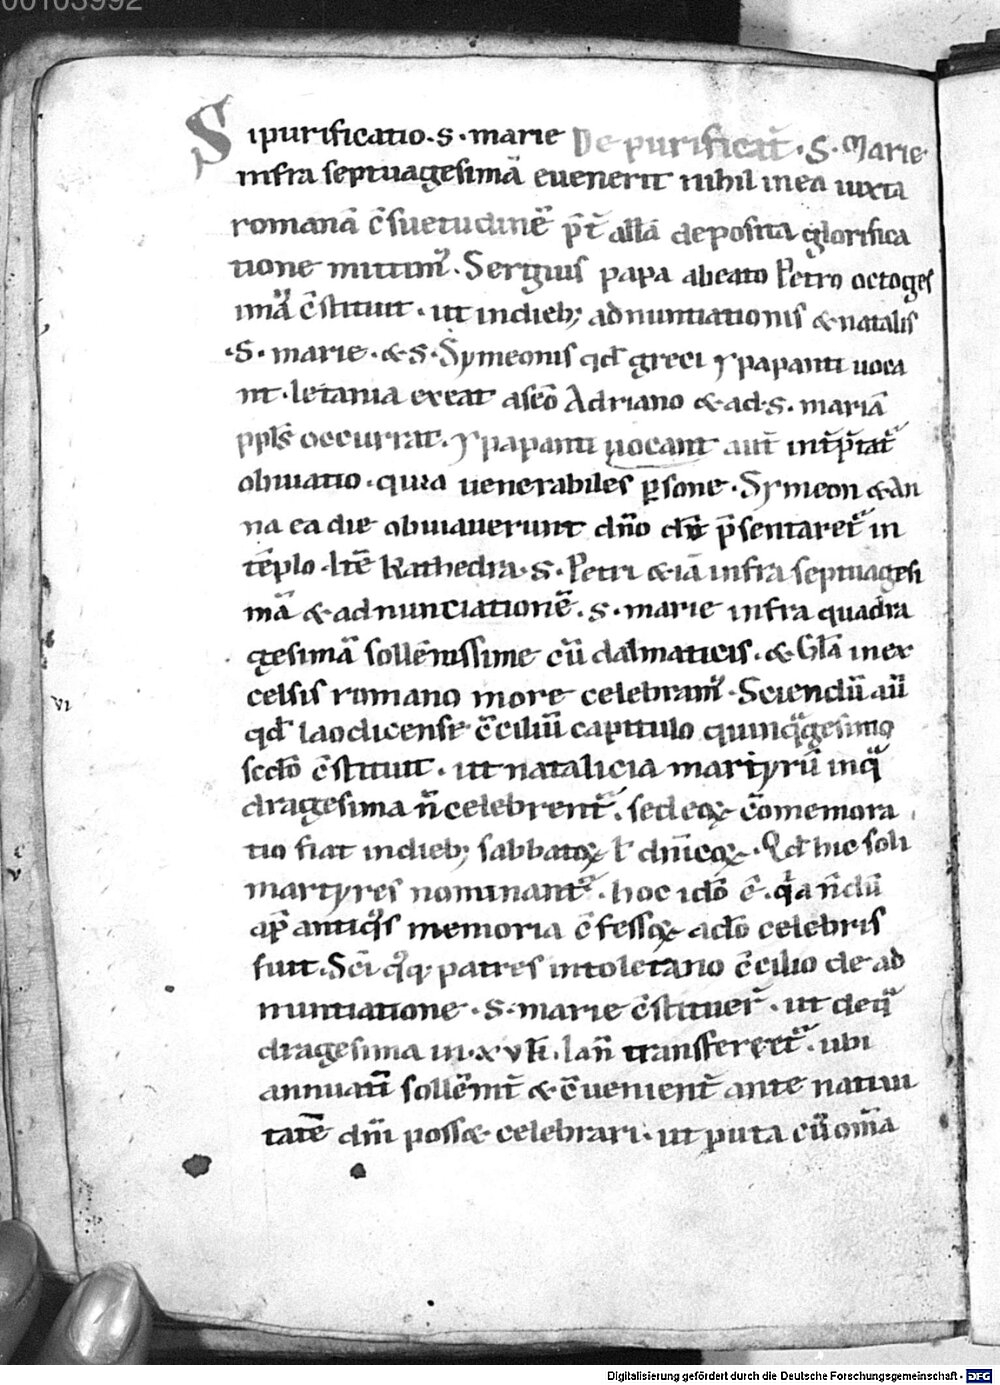 00103992
Sipurificatio·s·marie De purificat̄·S·Marie·
infra septuagesimā euenerit nihil inea iuxta
romanā c̄suetudinē p̄t allā deposita glorifica
tione mittim᷒·Sergius papa abeato Petro octoges
im᷒ c̄stituit·ut indieb; adnuntiationis & natalis
·S·marie·&·S·Symeonis qđ greci ypapanti uoca
nt·letania exeat ascō Adriano & ad·s·mariā
ppl̄s occurrat·ypapanti uocant aut̄ int̄p̄tat᷒
obuiatio·quia uenerabiles ꝑsone·Symeon & An
na ea die obuiauerunt dn̄o cū p̄sentaret᷒ in
tēplo·Itē kathedra·s·Petri & iā infra septuagesi
mā & adnunciationē·s·marie infra quadra
gesimā sollēnissime cū dalmaticis·& Glā inex
celsis romano more celebram᷒·Sciendū aū
vi
qđ laodicense c̄ciliū capitulo quinqᵃgesimo
scdō c̄stituit·ut natalicia martyrū inqᵃ
dragesima n̄ celebrent᷒·sed eoꝝ c̄omemora
tio fiat indieb; sabbatoꝝ ł dn̄icoꝝ·Qđ hic soli
martyres nominant᷒·hoc idō ē·qᵃa n̄dū
ap̄ antiqͥs memoria c̄fessoꝝ adō celebris
fuit·Scī qͦqꝫ patres intoletano c̄cilio de ad
nuntiatione·s·marie c̄stituer̄·ut deqᵃ
dragesima in·xv kł·Ian̄ transferret᷒·ubi
annuatī sollēnit̄ & c̄uenient̄ ante natiui
tatē dn̄i poss& celebrari·ut puta cū om̄a
Digitalisierung gefördert durch die Deutsche Forschungsgemeinschaft - DFG